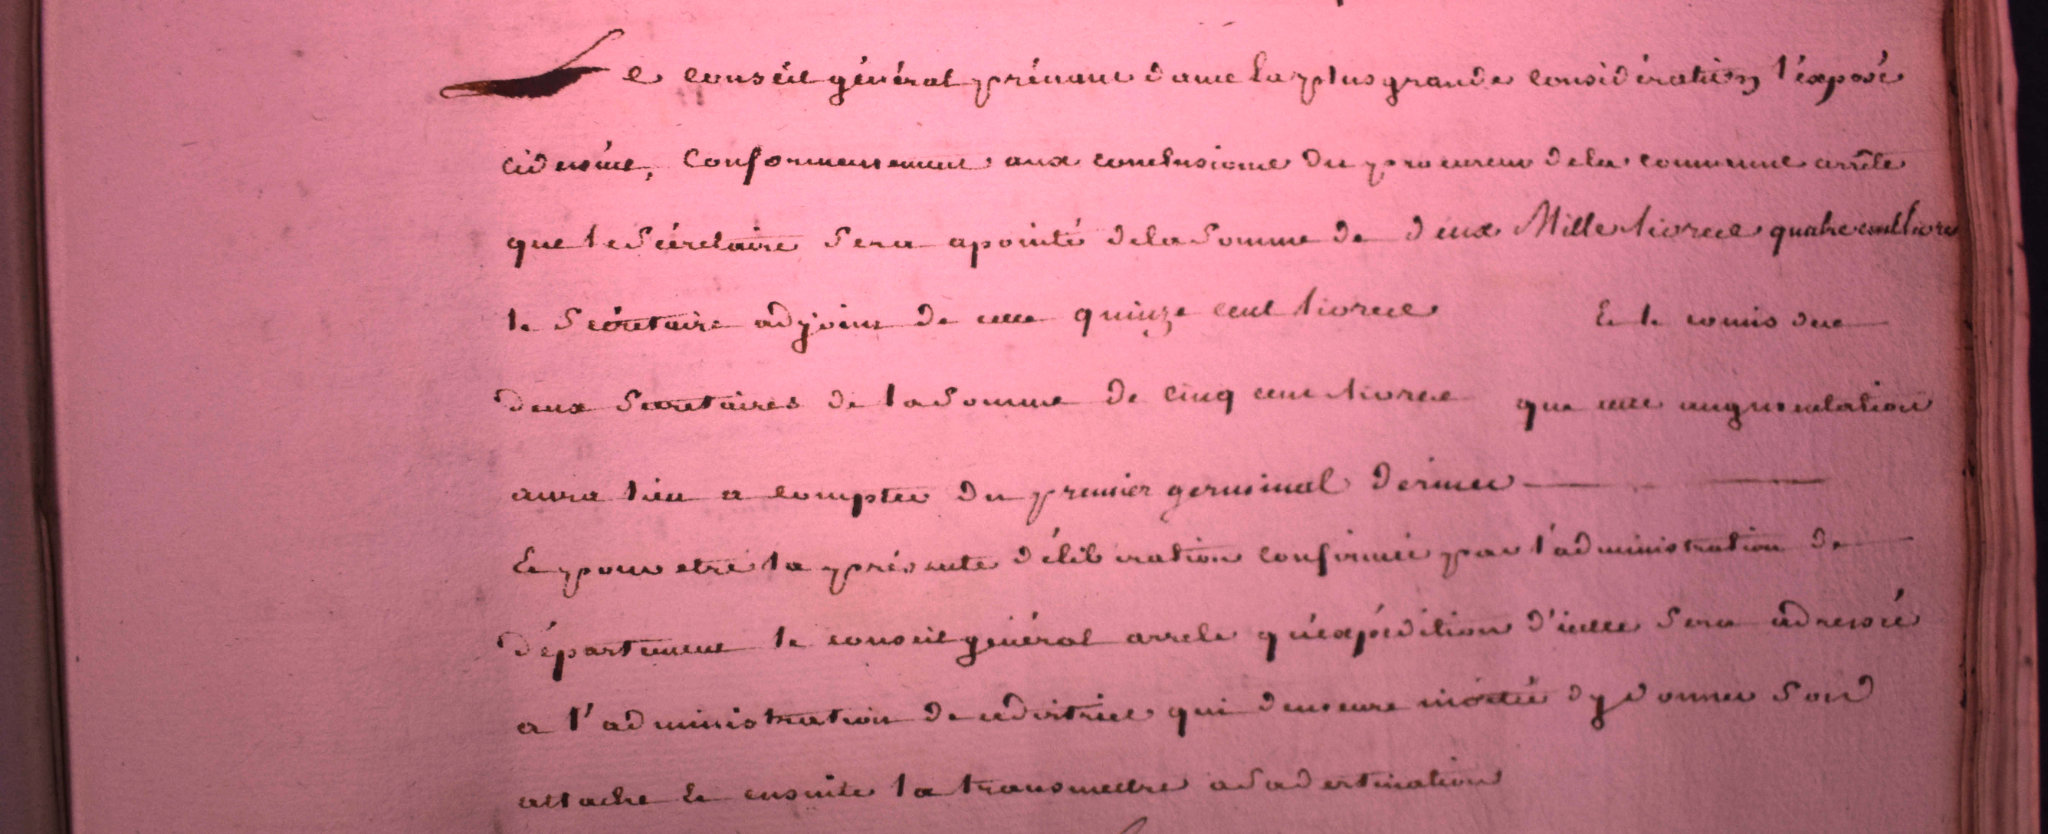 Le conseil général prénant dans la plus grande considération l'éxposé
cidessus, conformement aux conclusions du procureur dela commune arrête
que le Sécrétaire sera apointé dela Somme de deux Mille livres quatre cent livres
le Sécrétaire adjoint de celle quinze cent livres Et le comis des
deux Secretaires de la Somme de cinq cent livres que cette augmentation
aura lieu a compter du premier germinal dernier
Et pour etre la présente délibération confirmée par l'administration de
département le conseil général arrete qu'éxpédition d'icelle sera adressée
a l'administration de cedistrict qui demeure invitée dy donner Son
attache et ensuite la transmettre asadestination